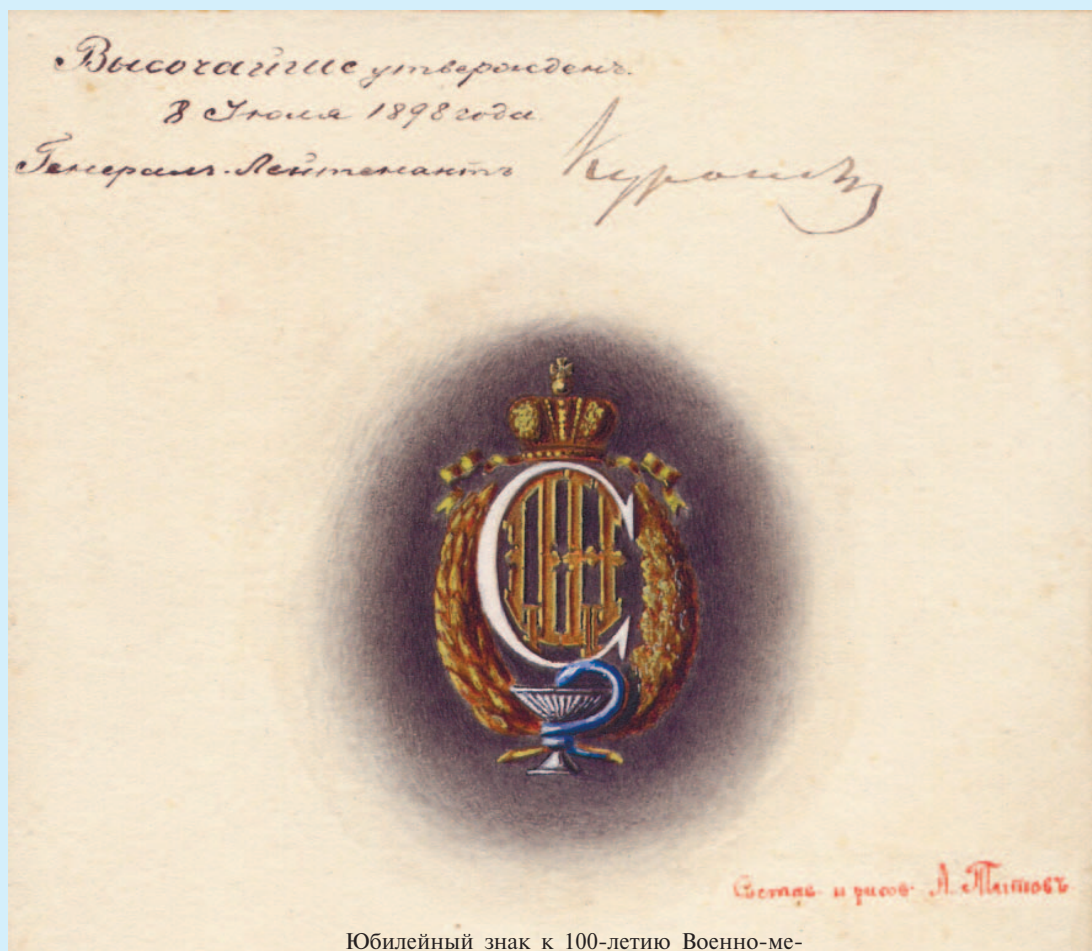 Высочайше утвержденъ.
8 Июля 1898 года
Генералъ-Лейтенантъ
С
Состав. и рисов. А. Титовъ
Юбилейный знак к 100-летию Военно-ме-